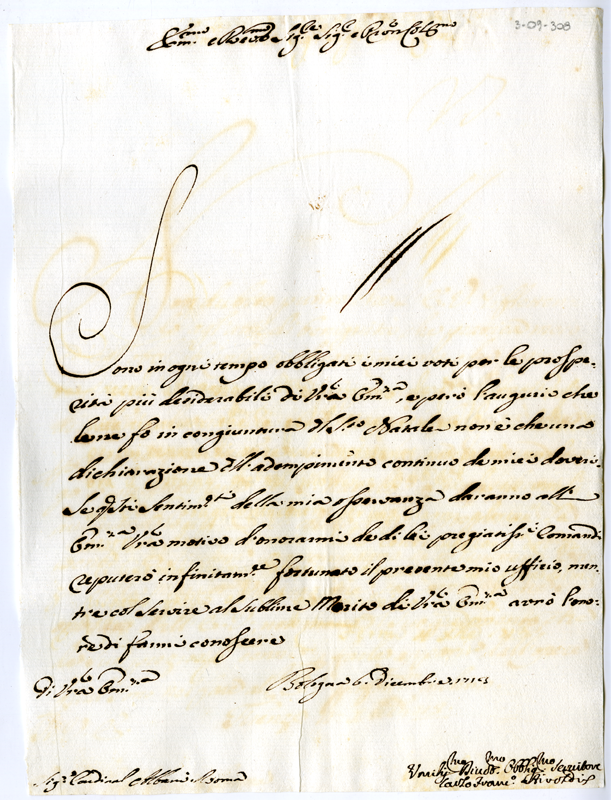 3-09-308
Em.mo e Rev.mo Sig.re Sig.re e Pron Col.mo
Sono in ogni tempo obbligati i miei voti per le prospe-
rità più desiderabili di Vra Em.za, e però l'augurio che
le ne fò in congiuntura del S.to Natale non è che una
dichiarazione dell'adempimento continuo de miei doveri.
Se q.sti Sentim.ti della mia osservanza daranno all'
Em.za Vra motivo d'onorarmi de di lei pregiatiss.i Comandi
reputerò infinitam.te fortunato il presente mio ufficio, men-
tre col servire al sublime Merito di Vra Em.za avrò l'ono-
re di farmi conoscere
Di Vra Em.za
Bologna 6. Dicembre
Sig.r Cardinal Albani Roma
Um.mo Obblig.mo Servitore
Carlo Franc.o